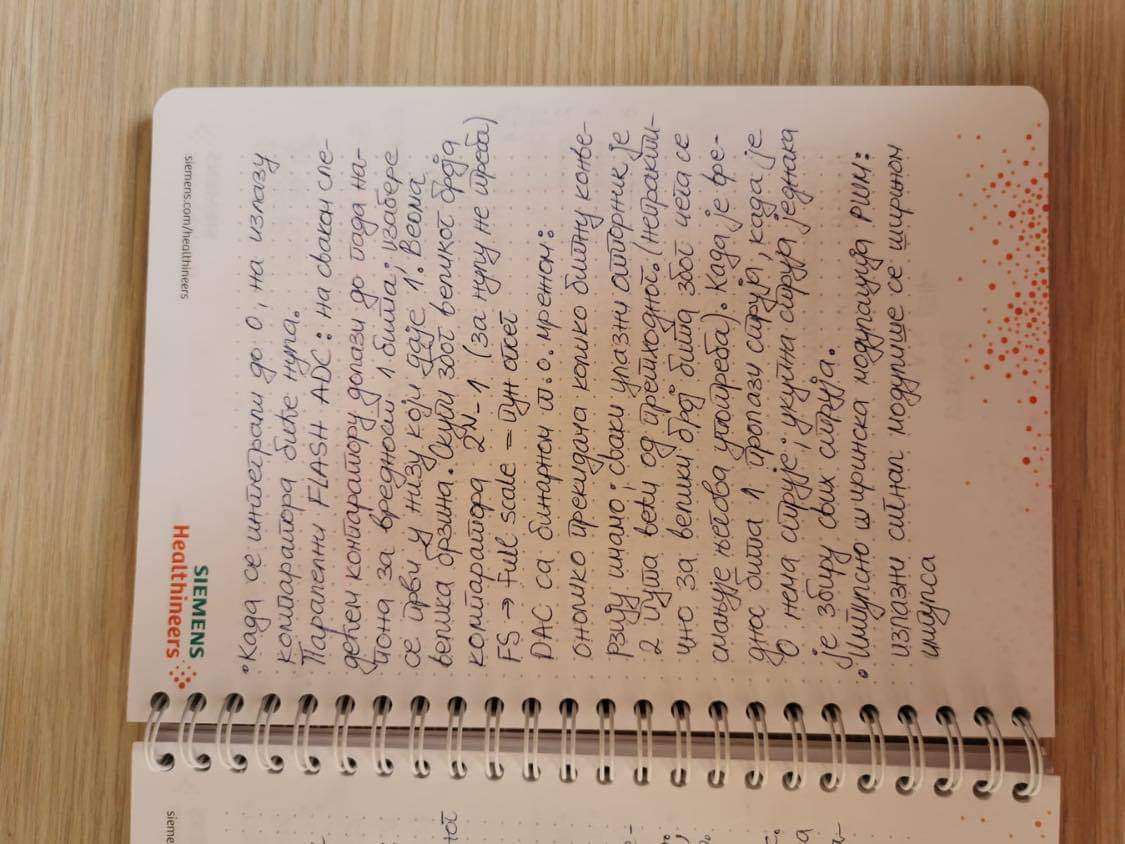 SIEMENS
Healthineers
siemens.com/healthineers
• Када се интеграли до 0, на излазу
компаратора биће нула.
Паралелни FLASH ADC: на сваком сле-
дећем компаратору долази до пада на-
пона за вредност 1 бита; изабере
се први у низу који даје '1'. Веома
велика брзина. Скупи због великог броја
компаратора 2^N-1 (за нулу не треба)
FS → full scale = пун опсег
DAC са бинарном т.о. мрежом:
онолико прекидача колико битну конве-
рзију имамо; сваки улазни отпорник је
2 пута већи од претходног. (непракти-
чно за велики број бита због чега се
смањује његова употреба). Када је вре-
дност бита 1 пролази струја, када је
0 нема струје; укупна струја једнака
је збиру свих струја.
• Импулсно ширинска модулација PИМ:
излазни сигнал модулише се ширином
импулса
sieme
ног